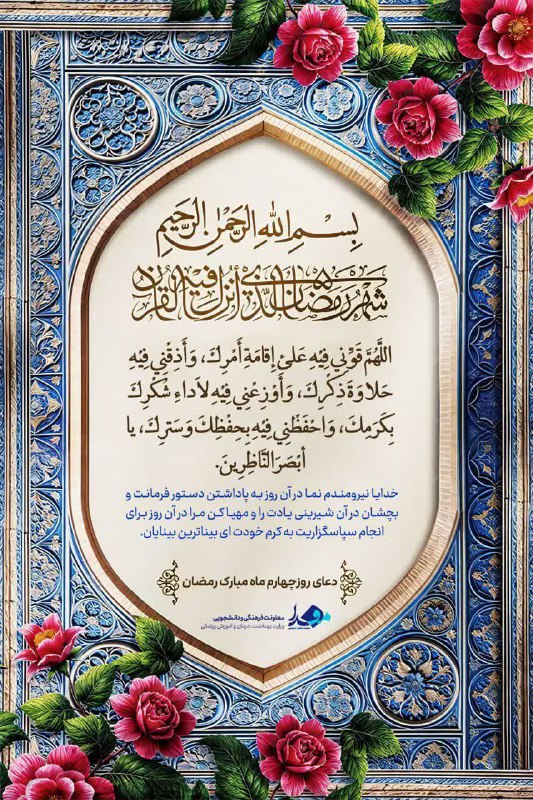 بِسْمِ اللهِ الرَّحْمٰنِ الرَّحِيمِ
شَهْرُ رَمَضَانَ الَّذِي أُنْزِلَ فِيهِ الْقُرْآنُ
اللَّهُمَّ قَوِّنِي فِيهِ عَلَىٰ إِقَامَةِ أَمْرِكَ، وَأَذِقْنِي فِيهِ
حَلَاوَةَ ذِكْرِكَ، وَأَوْزِعْنِي فِيهِ لِأَدَاءِ شُكْرِكَ
بِكَرَمِكَ، وَاحْفَظْنِي فِيهِ بِحِفْظِكَ وَسَتْرِكَ، يَا
أَبْصَرَ النَّاظِرِينَ.
خدایا نیرومندم نما در آن روز به پاداشتن دستور فرمانت و
بچشان در آن شیرینی یادت را و مهیا کن مرا در آن روز برای
انجام سپاسگزاریت به کرم خودت ای بیناترین بینایان.
دعای روز چهارم ماه مبارک رمضان
معاونت فرهنگی و دانشجویی
وزارت بهداشت، درمان و آموزش پزشکی